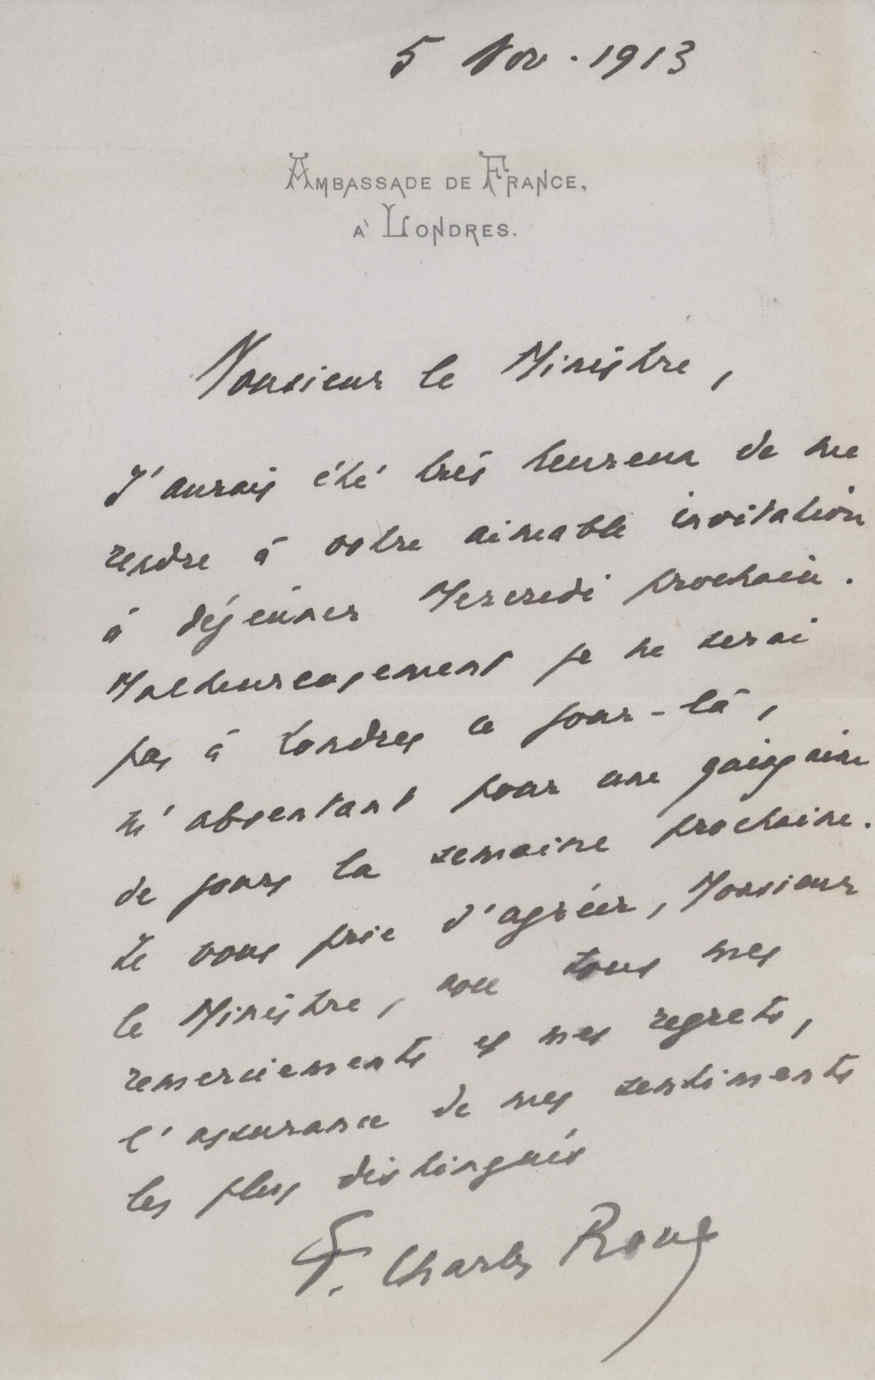 5 Nov. 1913
AMBASSADE DE FRANCE,
À LONDRES.
Monsieur le Ministre,
J'aurais été très heureux de me
rendre à votre aimable invitation
à déjeûner Mercredi prochain.
Malheureusement je ne serai
pas à Londres ce jour-là,
m'absentant pour une quinzaine
de jours la semaine prochaine.
Je vous prie d'agréer, Monsieur
le Ministre, avec tous mes
remerciements et mes regrets,
l'assurance de mes sentiments
les plus distingués
F. Charles Roux